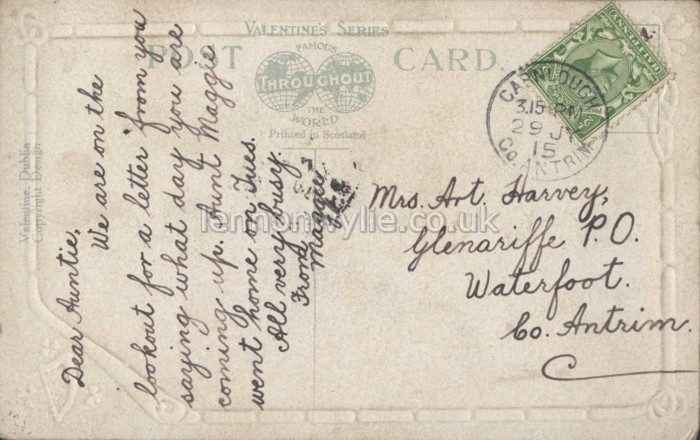 VALENTINE'S SERIES
POST CARD.
FAMOUS
THROUGHOUT
THE
WORLD
Printed in Scotland
Valentine, Dublin
Copyright Design
CARNLOUGH
3.15 PM
29 J
15
CO. ANTRIM
Dear Auntie,
We are on the
lookout for a letter from you
saying what day you are
coming up. Aunt Maggie
went home on Tues.
All very busy.
From
Maggie
Mrs. Art. Harvey,
Glenariffe P.O.
Waterfoot.
Co. Antrim.
lennonwylie.co.uk